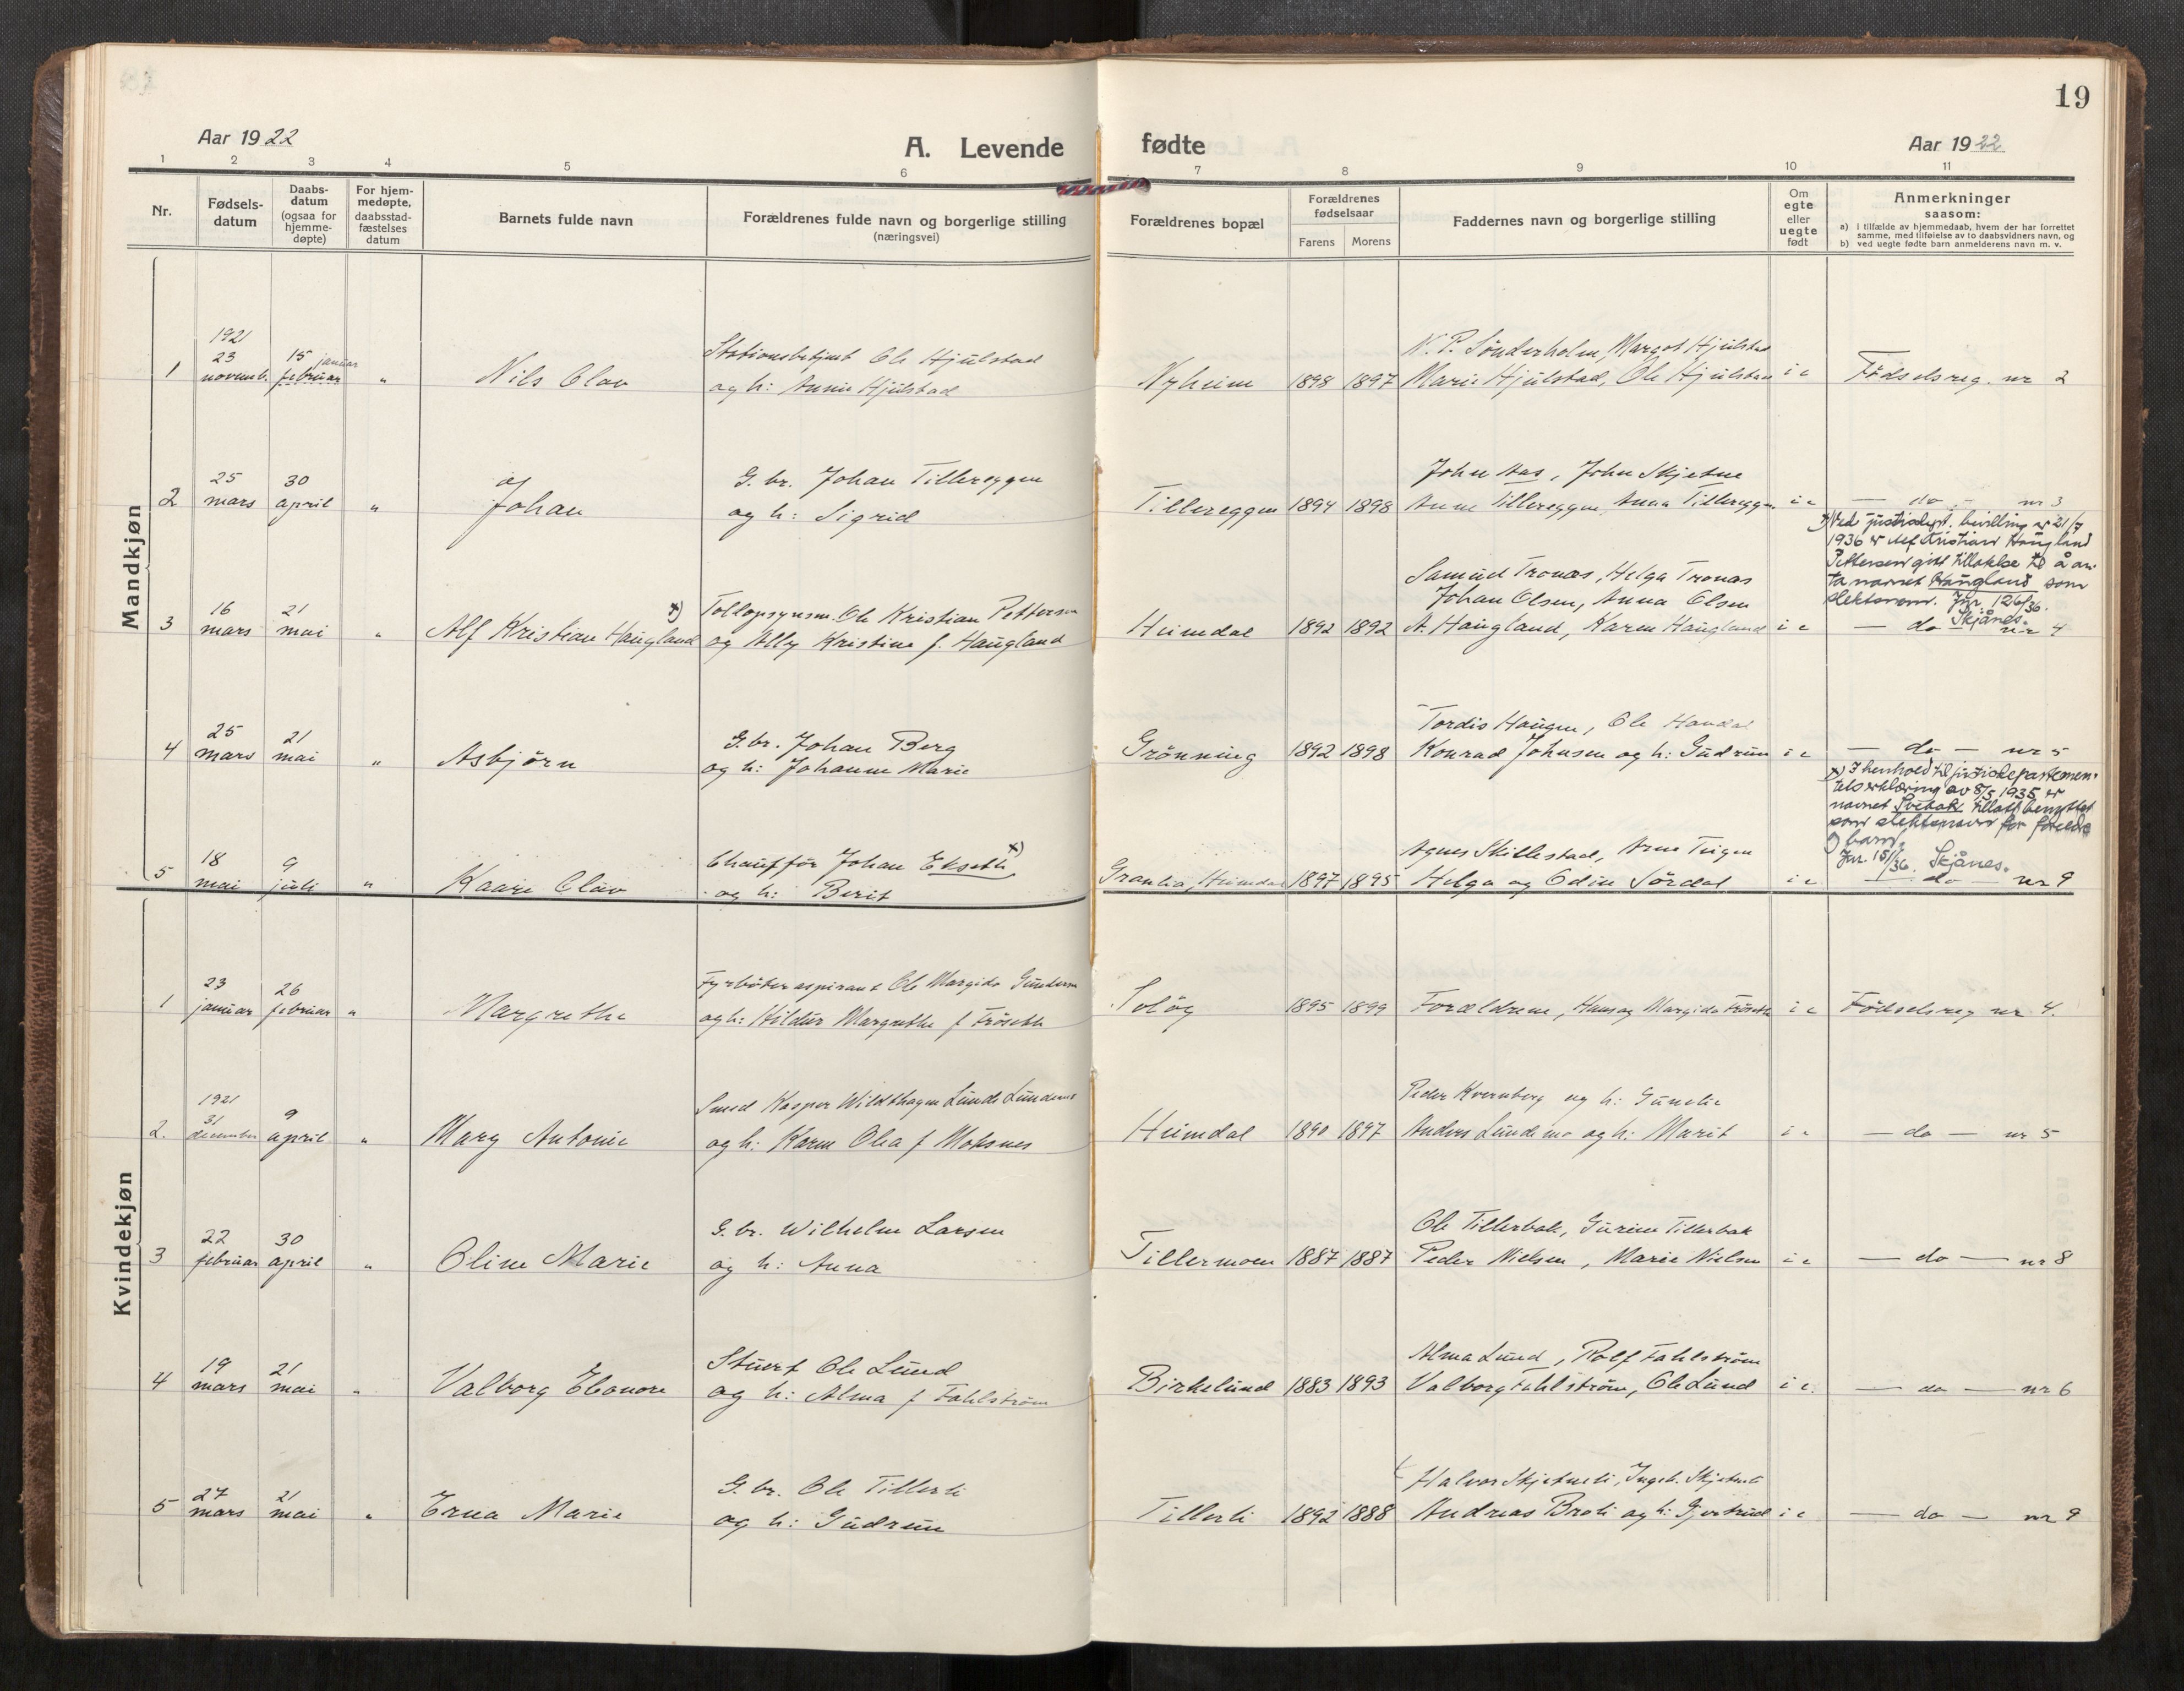 19
Aar 1922
A. Levende fødte
Aar 1922
1 2 3 4 5 6 7 8 9 10 11
Nr.
Fødsels-
datum
Daabs-
datum
(ogsaa for
hjemme-
døpte)
For hjem-
medøpte,
daabsstad-
fæstelses
datum
Barnets fulde navn
Forældrenes fulde navn og borgerlige stilling
(næringsvei)
Forældrenes bopæl
Forældrenes
fødselsaar
Farens Morens
Faddernes navn og borgerlige stilling
Om
egte
eller
uegte
født
Anmerkninger
saasom:
a) i tilfælde av hjemmedaab, hvem der har forrettet
samme, med tilføielse av to daabsvidners navn, og
b) ved uegte fødte barn anmelderens navn m. v.
Mandkjøn
1921
1 23 novemb. 15 januar februar " Nils Olav
Stationsbetjent Ole Hjulstad
og h: Annie Hjulstad
Nyheim 1898 1897
N. P. Sönderholm, Margot Hjulstad
Marie Hjulstad, Ole Hjulstad
Födselsreg. nr 2
2 25 mars 30 april " Johan
G. br. Johan Tillereggen
og h: Sigrid
Tillereggen 1894 1898
John Aas, John Skjetne
Anne Tillereggen, Anna Tillereggen
— do — nr 3
x) Ved justisdept. bevilling av 21/7
1936 er Alf Kristian Haugland
Pettersen gitt tillatelse til å an-
ta navnet Haugland som
slektsnavn. Jnr. 126/36.
Skjånes.
3 16 mars 21 mai " Alf Kristian Haugland x)
Tollopsynsm. Ole Kristian Pettersen
og Ally Kristine f. Haugland
Heimdal 1892 1892
Samuel Tronæs, Helga Tronæs
Johan Olsen, Anna Olsen
A. Haugland, Karen Haugland
— do — nr 4
4 25 mars 21 mai " Asbjörn
G. br. Johan Berg
og h: Johanne Marie
Grönning 1892 1898
Tordis Haugen, Ole
Konrad Johnsen og h: Gudrun
— do — nr 5
x) I henhold til justisdepartemen-
tets erklæring av 8/5 1935 er
navnet tillatt benyttet
som slektsnavn for foreldre
og barn.
Jnr. 151/36. Skjånes.
5 18 mai 9 juli " Kaare Olav
Chaufför Johan Ekseth x)
og h: Berit
Granlia, Heimdal 1897 1895
Agnes Skillestad, Arne Teigen
Helga og Odin Sördal
— do — nr 9
Kvindekjøn
1 23 januar 26 februar " Margrethe
Fyrböteraspirant Ole Margido Gundersen
og h: Hildur Margrethe f Fröseth
Solög 1895 1899
Forældrene, Hans og Margido Fröseth
Födselsreg nr 4.
1921
2. 31 december 9 april " Mary Antonie
Smed Kasper Wildthagen Lunde Lundemo
og h: Karen Olea f Moksnes
Heimdal 1890 1897
Peder Kvernberg og h: Gunelie
Anders Lundemo og h: Marit
— do — nr 5
3 22 februar 30 april " Oline Marie
G. br. Wilhelm Larsen
og h: Anna
Tillermoen 1887 1887
Ole Tillerbak, Gurine Tillerbak
Peder Nielsen, Marie Nielsen
— do — nr 8
4 19 mars 21 mai " Valborg Elonore
Stuert Ole Lund
og h: Alma f Fahlström
Birkelund 1883 1893
Alma Lund, Rolf Fahlström
Valborg Fahlström, Ole Lund
— do — nr 6
5 27 mars 21 mai " Erna Marie
G. br. Ole Tillerli
og h: Gudrun
Tillerli 1892 1888
Halvor Skjetneli, Ingeb. Skjetneli
Andreas Broli og h: Gjertrud
— do — nr 9